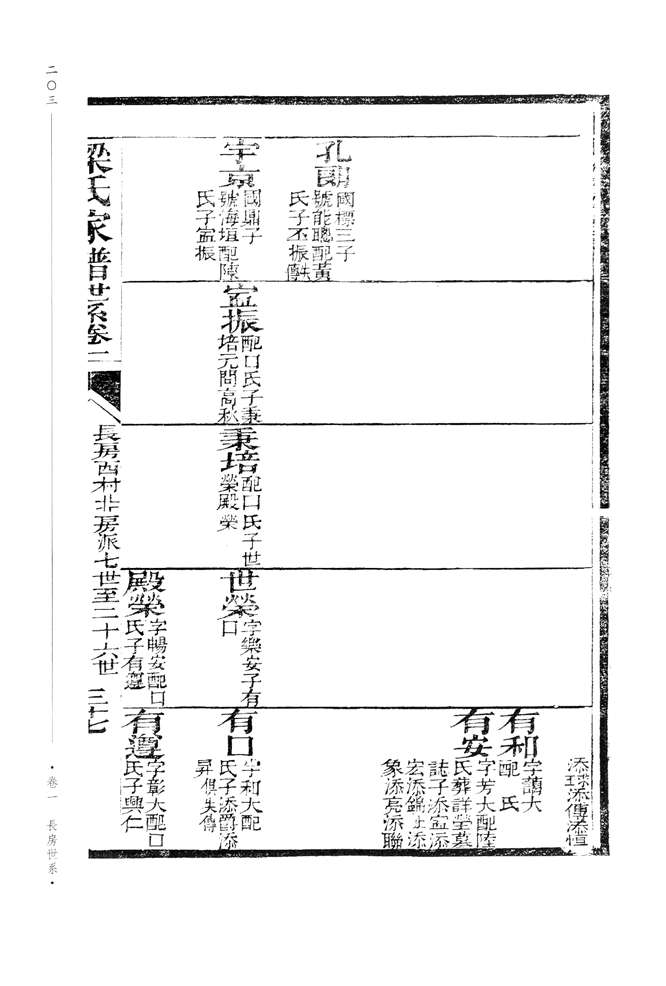 二〇三
卷一 長房世系
孔明
國標三子
號能聰配黃
氏子丕振
宇京
國鼎子
號海垣配陳
氏子寍振
寍振
配口氏子秉
培元問高秋
秉培
配口氏子世
榮殿榮
世榮
字樂安子有
口
殿榮
字暢安配口
氏子有遑
添球添傳添愷
有和
字讀大
配 氏
有安
字芳大配陸
氏葬詳塋墓
誌子添寍添
宏添錦添
象添亮添聯
有口
字利大配
氏子添爵添
昇俱失傳
有遑
字彰大配口
氏子興仁
梁氏家譜世系卷一
長房西村北房派七世至二十六世
三十七